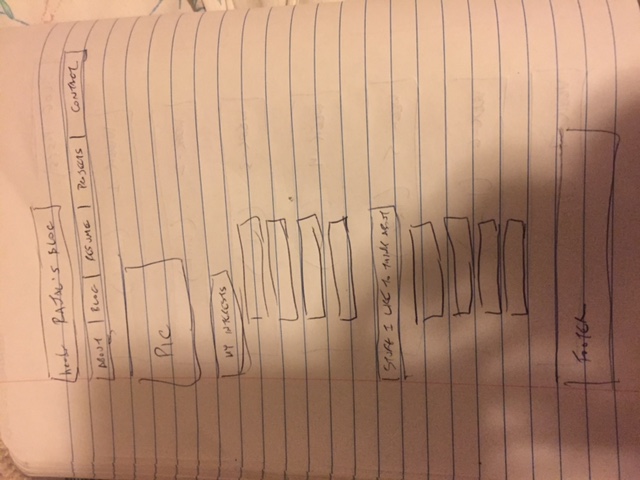 header RAJAL'S BLOG
ABOUT | BLOG | RESUME | PROJECTS | CONTACT
PIC
MY INTERESTS
STUFF I LIKE TO THINK ABOUT
FOOTER